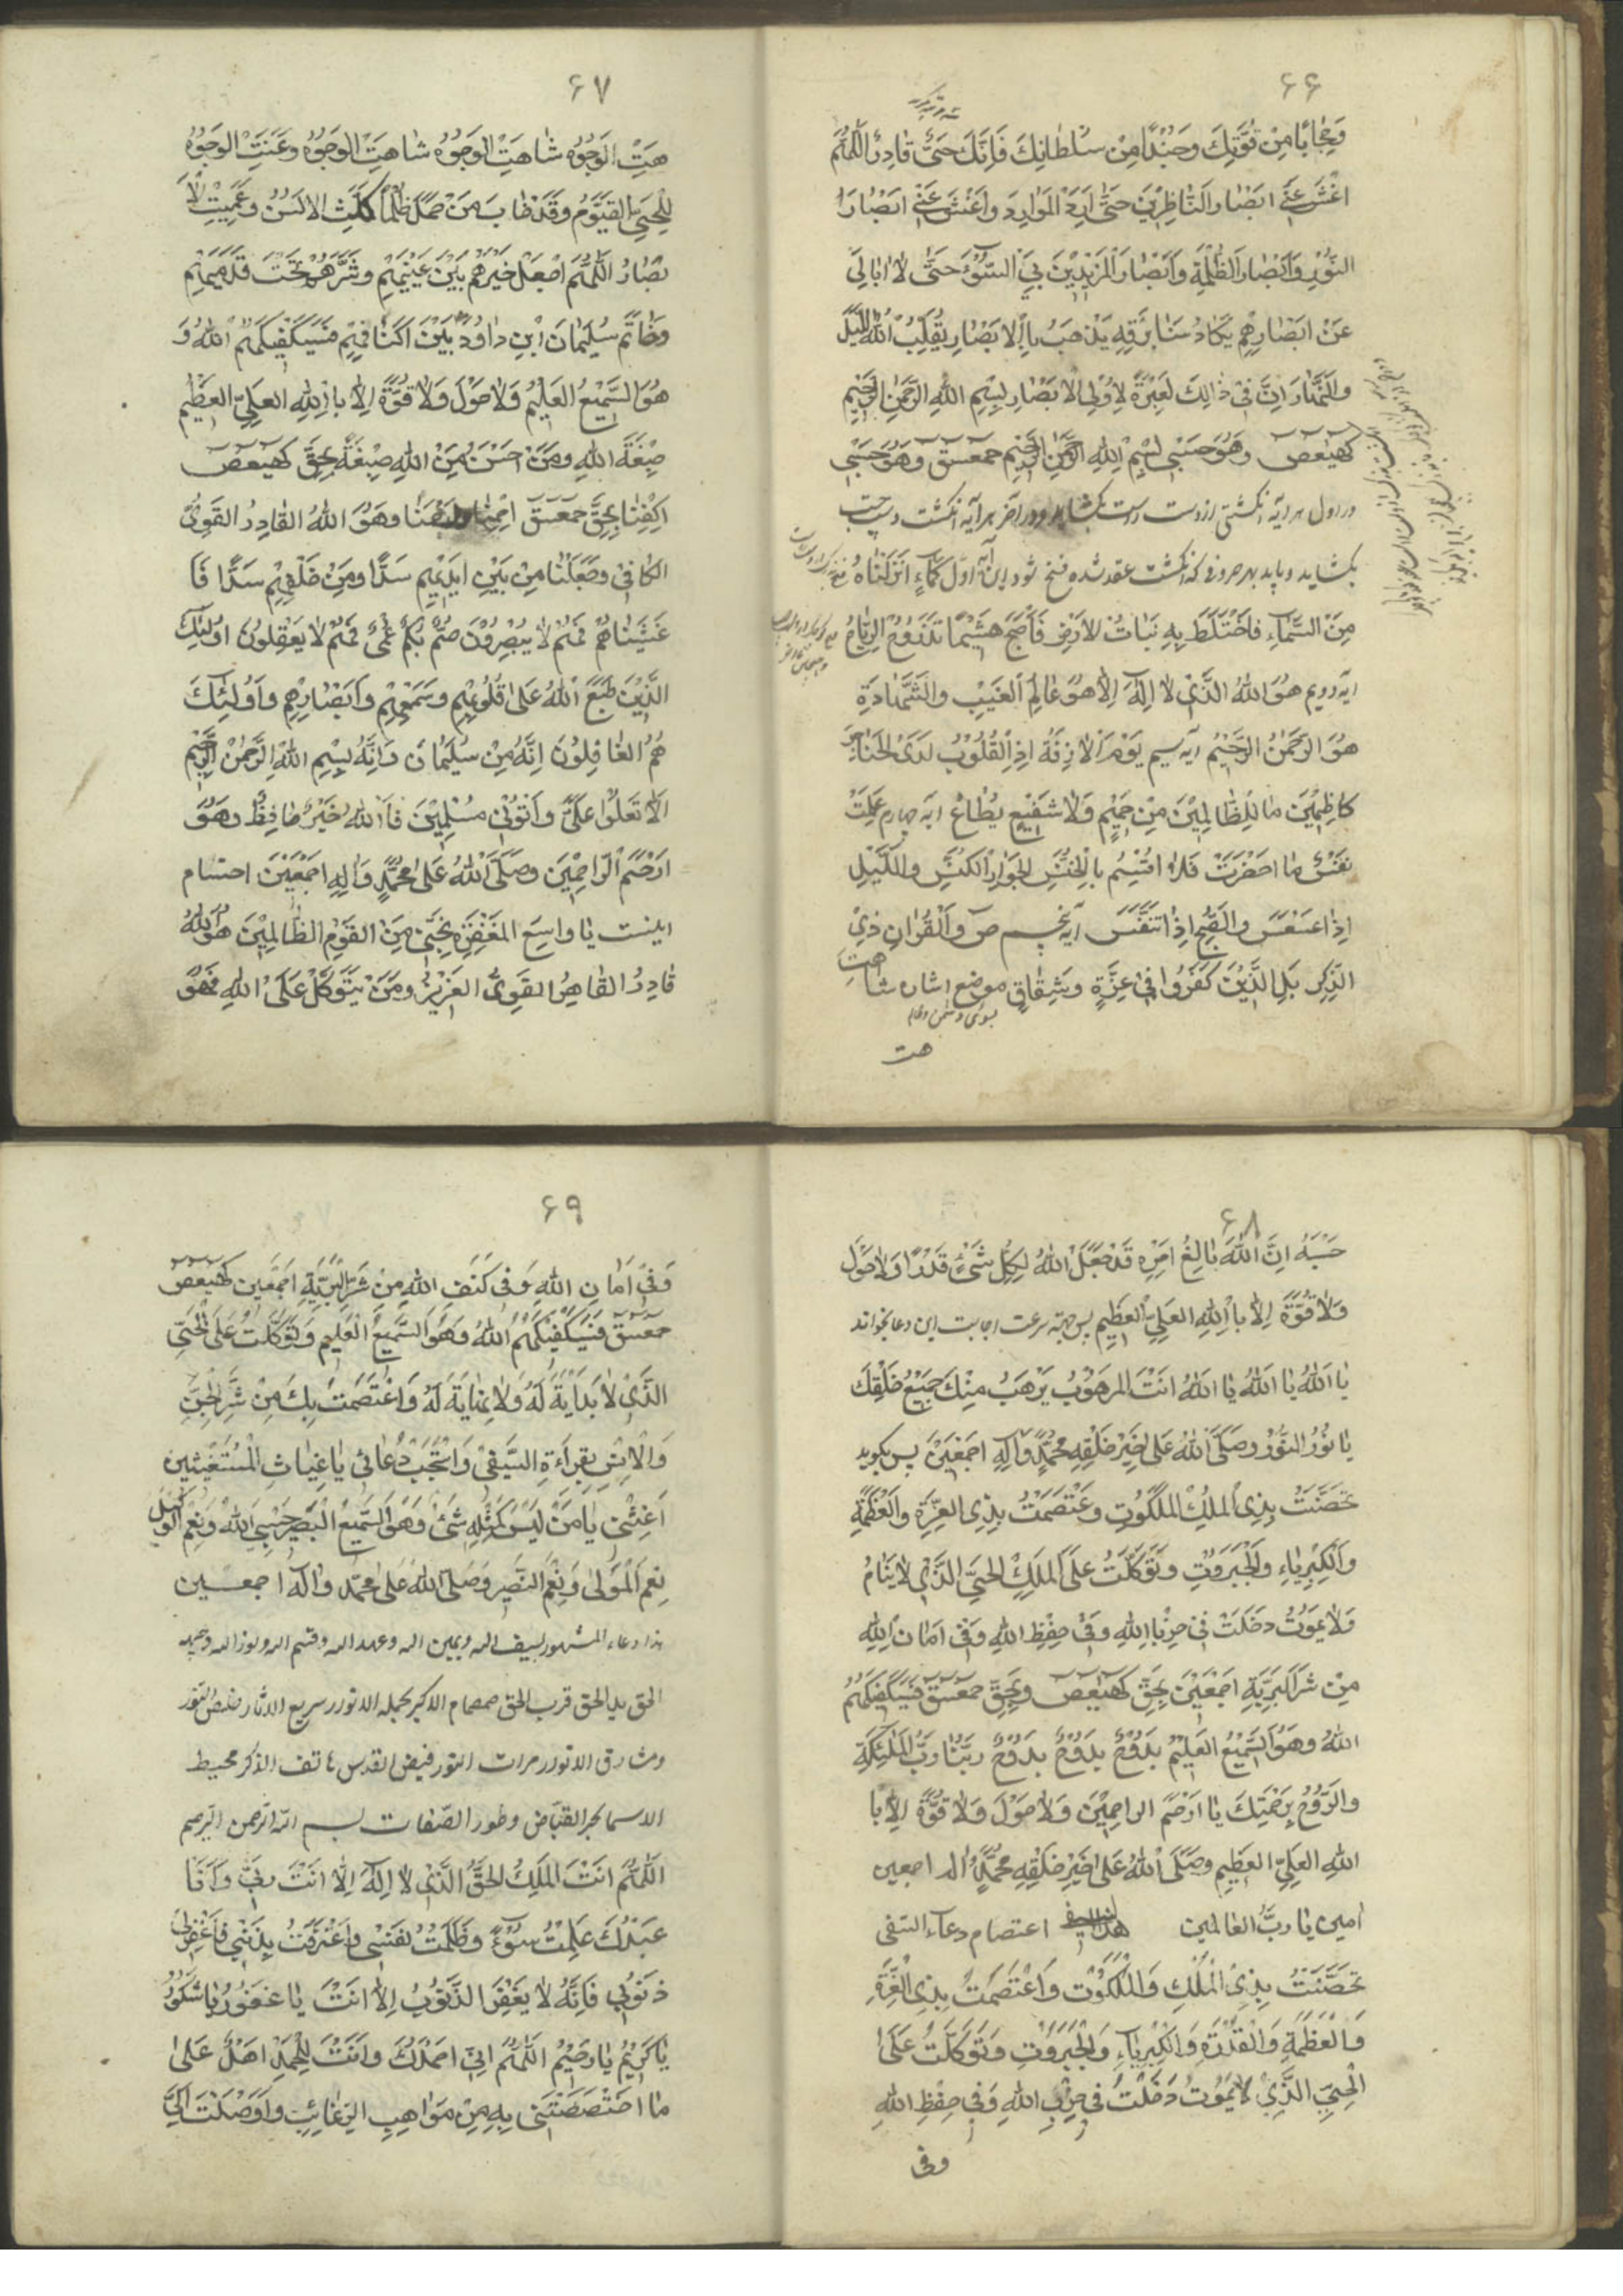 ۶۶
وَحِجَابًا مِنْ قُوَّتِكَ وَجُنْدًا مِنْ سُلْطَانِكَ فَإِنَّكَ حَيٌّ قَادِرٌ اللَّهُمَّ
اغْشَ عَنِّي ابْصَارَ النَّاظِرِيْنَ حَتَّى ارِدَ الْمَوَارِدَ وَاغْشَ عَنِّي ابْصَارَ
النُّوْرِ وَاَبْصَارَ الظُّلْمَةِ وَاَبْصَارَ الْمُرِيْدِيْنَ بِيَ السُّوْءَ حَتَّى لَا اُبَالِيَ
عَنْ ابْصَارِهِمْ يَكَادُ سَنَا بَرْقِهِ يَذْهَبُ بِالْاَبْصَارِ يُقَلِّبُ اللهُ اللَّيْلَ
وَالنَّهَارَ اِنَّ فِيْ ذَالِكَ لَعِبْرَةً لِاُوْلِي الْاَبْصَارِ بِسْمِ اللهِ الرَّحْمٰنِ الرَّحِيْمِ
كهيعص وَهُوَ حَسْبِي بِسْمِ اللهِ الرَّحْمٰنِ الرَّحِيْمِ حمعسق وَهُوَ حَسْبِي
در اول هر آیه انکشتی از دست راست بکشاید و در آخر هر آیه انکشت دست چپ
بکشاید و باید بهر حروف که انکشت عقد شده فتح شود این آیه اوّل كَمَاءٍ اَنْزَلْنَاهُ
مِنَ السَّمَاءِ فَاخْتَلَطَ بِهِ نَبَاتُ الْاَرْضِ فَاَصْبَحَ هَشِيْمًا تَذْرُوْهُ الرِّيَاحُ
ایه دویم هُوَ اللهُ الَّذِيْ لَا اِلٰهَ اِلَّا هُوَ عَالِمُ الْغَيْبِ وَالشَّهَادَةِ
هُوَ الرَّحْمٰنُ الرَّحِيْمُ ایه سیم يَوْمَ الْاٰزِفَةِ اِذِ الْقُلُوْبُ لَدَى الْحَنَاجِرِ
كَاظِمِيْنَ مَا لِلظَّالِمِيْنَ مِنْ حَمِيْمٍ وَلَا شَفِيْعٍ يُطَاعُ ایه چهارم عَلِمَتْ
نَفْسٌ مَا احْضَرَتْ فَلَا اُقْسِمُ بِالْخُنَّسِ الْجَوَارِ الْكُنَّسِ وَاللَّيْلِ
اِذَا عَسْعَسَ وَالصُّبْحِ اِذَا تَنَفَّسَ آیه پنجم ص وَالْقُرْاٰنِ ذِي
الذِّكْرِ بَلِ الَّذِيْنَ كَفَرُوا فِيْ عِزَّةٍ وَشِقَاقٍ موضع اشاره شاهت
هت
۶۷
هَتِ الْوُجُوْهُ شَاهَتِ الْوُجُوْهُ شَاهَتِ الْوُجُوْهُ وَعَنَتِ الْوُجُوْهُ
لِلْحَيِّ الْقَيُّوْمِ وَقَدْ خَابَ مَنْ حَمَلَ ظُلْمًا كَلَّتِ الْاَلْسُنُ وَعَمِيَتِ الْاَ
بْصَارُ اللَّهُمَّ اجْعَلْ خَيْرَهُمْ بَيْنَ عَيْنَيْهِمْ وَشَرَّهُمْ تَحْتَ قَدَمَيْهِمْ
وَخَاتَمَ سُلَيْمَانَ ابْنِ دَاوُدَ بَيْنَ اَكْتَافِهِمْ فَسَيَكْفِيْكَهُمُ اللهُ وَ
هُوَ السَّمِيْعُ الْعَلِيْمُ وَلَا حَوْلَ وَلَا قُوَّةَ اِلَّا بِاللهِ الْعَلِيِّ الْعَظِيْمِ
صِبْغَةَ اللهِ وَمَنْ احْسَنُ مِنَ اللهِ صِبْغَةً بِحَقِّ كهيعص
اكْفِنَا بِحَقِّ حمعسق احْمِنَا وَهُوَ اللهُ الْقَادِرُ الْقَوِيُّ
الْكَافِيْ وَجَعَلْنَا مِنْ بَيْنِ اَيْدِيْهِمْ سَدًّا وَمِنْ خَلْفِهِمْ سَدًّا فَاَ
غْشَيْنَاهُمْ فَهُمْ لَا يُبْصِرُوْنَ صُمٌّ بُكْمٌ عُمْيٌ فَهُمْ لَا يَعْقِلُوْنَ اُولٰئِكَ
الَّذِيْنَ طَبَعَ اللهُ عَلٰى قُلُوْبِهِمْ وَسَمْعِهِمْ وَاَبْصَارِهِمْ وَاُوْلٰئِكَ
هُمُ الْغَافِلُوْنَ اِنَّهُ مِنْ سُلَيْمَانَ وَاِنَّهُ بِسْمِ اللهِ الرَّحْمٰنِ الرَّحِيْمِ
اَلَّا تَعْلُوْا عَلَيَّ وَاْتُوْنِي مُسْلِمِيْنَ فَاللهُ خَيْرٌ حَافِظًا وَهُوَ
ارْحَمُ الرَّاحِمِيْنَ وَصَلَّى اللهُ عَلٰى مُحَمَّدٍ وَاٰلِهِ اجْمَعِيْنَ احتشام
اینست يَا وَاسِعَ الْمَغْفِرَةِ نَجِّنِي مِنَ الْقَوْمِ الظَّالِمِيْنَ هُوَ اللهُ
قَادِرُ الْقَاهِرُ الْقَوِيُّ الْعَزِيْزُ وَمَنْ يَتَوَكَّلْ عَلَى اللهِ فَهُوَ
۶۸
حَسْبُهُ اِنَّ اللهَ بَالِغُ امْرِهِ قَدْ جَعَلَ اللهُ لِكُلِّ شَيْءٍ قَدْرًا وَلَا حَوْلَ
وَلَا قُوَّةَ اِلَّا بِاللهِ الْعَلِيِّ الْعَظِيْمِ پس جهة سرعت اجابت این دعا بخواند
يَا اَللهُ يَا اَللهُ يَا اَللهُ انْتَ الْمَرْهُوْبُ يَرْهَبُ مِنْكَ جَمِيْعُ خَلْقِكَ
يَا نُوْرَ النُّوْرِ وَصَلَّى اللهُ عَلٰى خَيْرِ خَلْقِهِ مُحَمَّدٍ وَاٰلِهِ اجْمَعِيْنَ پس بکوید
تَحَصَّنْتُ بِذِي الْمُلْكِ الْمَلَكُوْتِ وَعْتَصَمْتُ بِذِي الْعِزَّةِ وَالْعَظَمَةِ
وَالْكِبْرِيَاءِ وَالْجَبَرُوْتِ وَتَوَكَّلْتُ عَلَى الْمَلِكِ الْحَيِّ الَّذِيْ لَا يَنَامُ
وَلَا يَمُوْتُ دَخَلْتُ فِيْ حِرْزِ اللهِ وَفِيْ حِفْظِ اللهِ وَفِيْ اَمَانِ اللهِ
مِنْ شَرِّ الْبَرِيَّةِ اجْمَعِيْنَ بِحَقِّ كهيعص وَبِحَقِّ حمعسق فَسَيَكْفِيْكَهُمُ
اللهُ وَهُوَ السَّمِيْعُ الْعَلِيْمُ بَدُّوْحٌ بَدُّوْحٌ بَدُّوْحٌ رَبُّنَا وَرَبُّ الْمَلٰئِكَةِ
وَالرُّوْحِ بِرَحْمَتِكَ يَا ارْحَمَ الراحِمِيْنَ وَلَا حَوْلَ وَلَا قُوَّةَ اِلَّا بِا
اللهِ الْعَلِيِّ الْعَظِيْمِ وَصَلَّى اللهُ عَلٰى خَيْرِ خَلْقِهِ مُحَمَّدٍ وَاله اجمعین
امين يَا رَبَّ الْعَالَمِين اعتصام دعآء السَّيفی
تَحَصَّنْتُ بِذِيْ الْمُلْكِ وَالْمَلَكُوْتِ وَاعْتَصَمْتُ بِذِي الْعِزَّةِ
وَالْعَظَمَةِ وَالْقُدْرَةِ وَالْكِبْرِيَآءِ وَالْجَبَرُوْتِ وَتَوَكَّلْتُ عَلَى
الْحَيِّ الَّذِيْ لَا يَمُوْتُ دَخَلْتُ فِي حِرْزِ اللهِ وَفِي حِفْظِ اللهِ
وفی
۶۹
وَفِيْ اَمَانِ اللهِ وَفِي كَنَفِ اللهِ مِنْ شَرِّ الْبَرِيَّةِ اَجْمَعِين كهيعص
حمعسق فَسَيَكْفِيْكَهُمُ اللهُ وَهُوَ السَّمِيْعُ الْعَلِيم وَتَوَكَّلْتُ عَلَى الْحَيِّ
الَّذِيْ لَا بَدَايَةَ لَهُ وَلَا نِهَايَةَ لَهُ وَاعْتَصَمْتُ بِكَ مِنْ شَرِّ الْجِنِّ
وَالْاِنْسِ بِقِرَاءَةِ السَّيْفِيْ وَاسْتَجِبْ دُعَائِي يَا غِيَاثَ الْمُسْتَغِيْثِينَ
اَغِثْنِيْ يَا مَنْ لَيْسَ كَمِثْلِهِ شَيْءٌ وَهُوَ السَّمِيْعُ الْبَصِير حَسْبِيَ اللهُ وَنِعْمَ الْوَكِيْلُ
نِعْمَ الْمَوْلٰى وَنِعْمَ النَّصِير وَصَلَّى اللهُ عَلٰى مُحَمَّد وَاٰلِهِ اجمعـــين
هذا دعاء المشهور بسیف الله ویمین الله وعهد الله وقسم الله ونور الله وجبه
الحق ید الحق قرب الحق صمصام الاکبر الانور سریع الاثار فیض النّور
ومشارق الانور مرات النور فیض القدس هاتف الذکر محیط
الاسما بحر القبّاض وطور الصّفات بسم الله الرّحمن الرّحیم
اللَّهُمَّ انْتَ الْمَلِكُ الْحَقُّ الَّذِيْ لَا اِلٰهَ اِلَّا انْتَ رَبِّيْ وَاَنَا
عَبْدُكَ عَمِلْتُ سُوْءً وَظَلَمْتُ نَفْسِي وَاعْتَرَفْتُ بِذَنْبِي فَاغْفِرْلِيْ
ذُنُوْبِي فَاِنَّهُ لَا يَغْفِرُ الذُّنُوْبَ اِلَّا انْتَ يَا غَفُوْرُ يَا شَكُوْرُ
يَا كَرِيْمُ يَا رَحِيْمُ اللَّهُمَّ اِنِّيْ احْمَدُكَ وَانْتَ لِلْحَمْدِ اهْلٌ عَلٰى
مَا اخْتَصَصْتَنِي بِهِ مِنْ مَوَاهِبِ الرَّغَائِبِ وَاَوْصَلْتَ اِلَيَّ